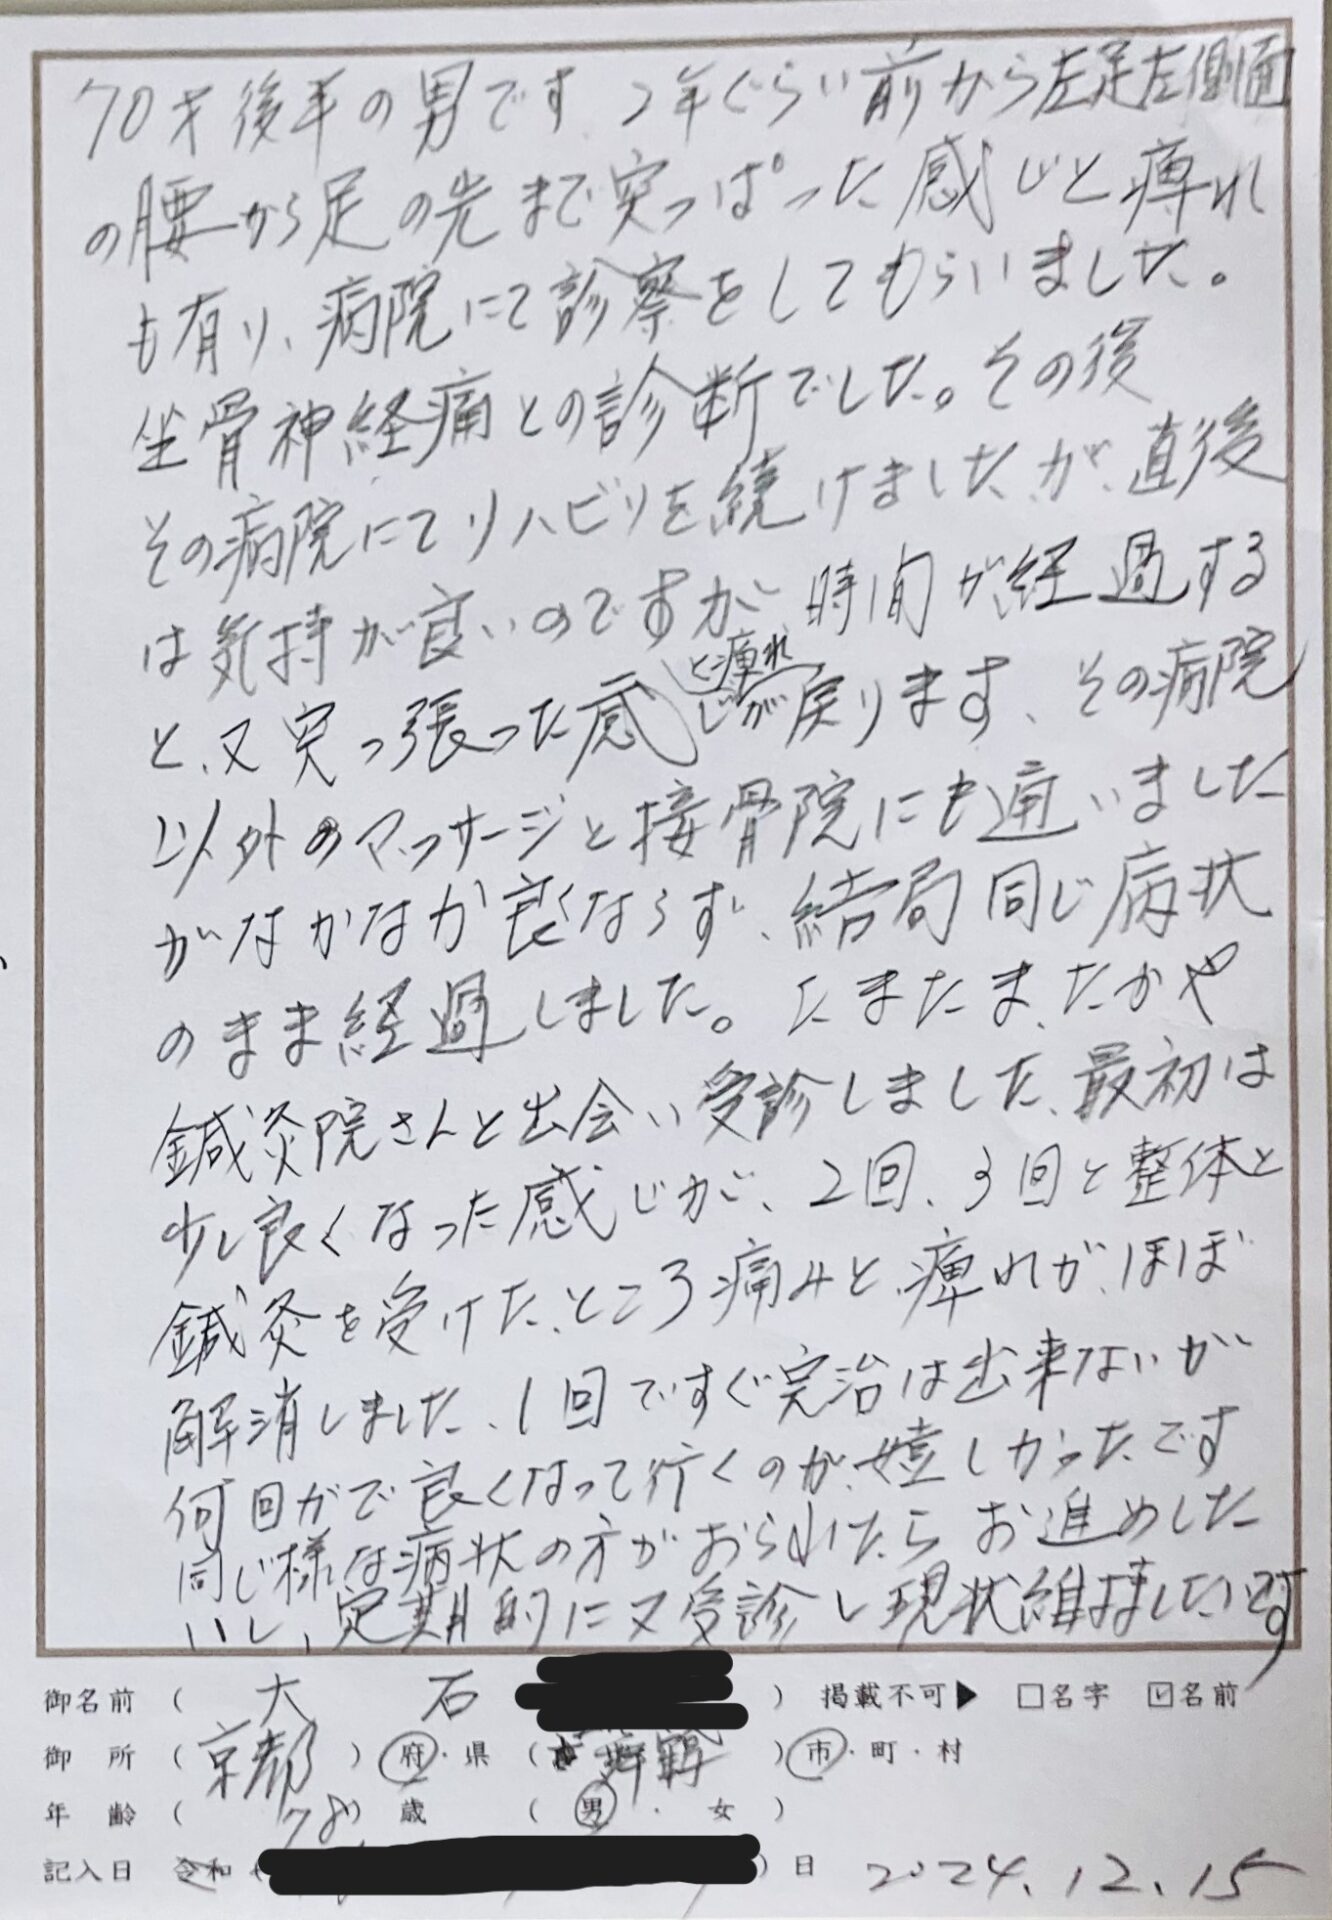 70才後半の男です、2年ぐらい前から左足左側面
の腰から足の先まで突っぱった感じと痺れ
も有り、病院にて診察をしてもらいました。
坐骨神経痛との診断でした。その後
その病院にてリハビリを続けましたが、直後
は気持が良いのですが 時間が経過する
と、又突っ張った感じと痺れが戻ります、その病院
以外のマッサージと接骨院にも通いました
がなかなか良くならず、結局同じ病状
のまま経過しました。たまたま、たかや
鍼灸院さんと出会い受診しました、最初は
少し良くなった感じが、2回、3回と整体と
鍼灸を受けた、ところ痛みと痺れが、ほぼ
解消しました、1回ですぐ完治は出来ないが
何回かで良くなって行くのが、嬉しかったです
同じ様な病状の方がおられたらお進めした
いし、定期的に又受診し現状維持したいです
御名前 ( 大 石 ) 掲載不可▶ □名字 ☑名前
御 所 ( 京都 ) 府・県 ( 舞鶴 ) 市・町・村
年 齢 ( 78 ) 歳 ( 男 ・ 女 )
記入日 令和 ( ) 日 2024.12.15